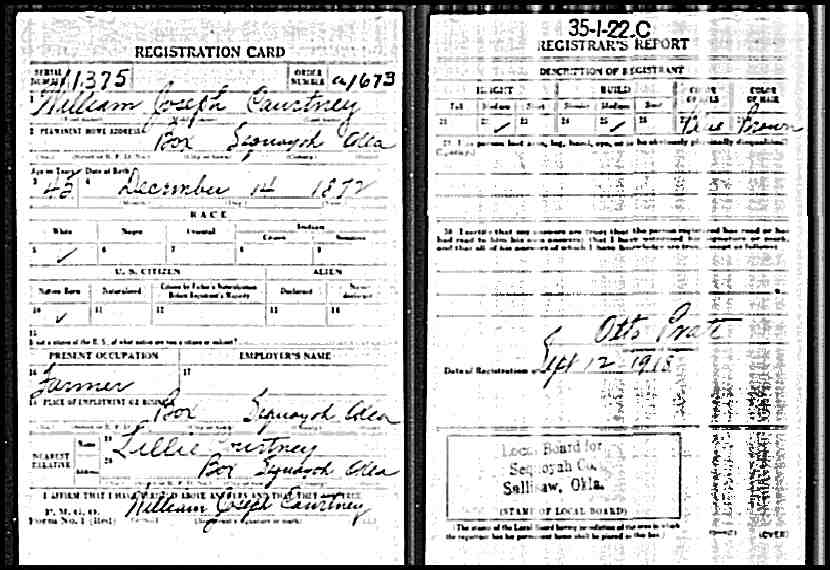 REGISTRATION CARD
SERIAL NUMBER 11375
ORDER NUMBER a1673
1 William Joseph Courtney
2 PERMANENT HOME ADDRESS
Box Sequoyah Okla
Age in Years Date of Birth
3 45 4 December 14 1872
RACE
White Negro Oriental Indian
Citizen Noncitizen
5 ✓ 6 7 8 9
U. S. CITIZEN ALIEN
Native Born Naturalized Citizen by Father's Naturalization Before Registrant's Majority Declarant Non-declarant
10 ✓ 11 12 13 14
15
If not a citizen of the U. S., of what nation are you a citizen or subject?
PRESENT OCCUPATION EMPLOYER'S NAME
16 Farmer 17
18 PLACE OF EMPLOYMENT OR BUSINESS
Box Sequoyah Okla
NEAREST RELATIVE
Name 19 Lillie Courtney
Address 20 Box Sequoyah Okla
I AFFIRM THAT I HAVE VERIFIED ABOVE ANSWERS AND THAT THEY ARE TRUE
P. M. G. O.
Form No. 1 (Red) William Joseph Courtney
(Registrant's signature or mark)
35-1-22.C
REGISTRAR'S REPORT
DESCRIPTION OF REGISTRANT
HEIGHT BUILD COLOR OF EYES COLOR OF HAIR
Tall Medium Short Slender Medium Stout
21 22 ✓ 23 24 25 ✓ 26 27 Blue Brown
29 Has person lost arm, leg, hand, eye, or is he obviously physically disqualified?
(Specify.)
30 I certify that my answers are true; that the person registered has read or has
had read to him his own answers; that I have witnessed his signature or mark,
and that all of his answers of which I have knowledge are true, except as follows:
Otto
Date of Registration Sept 12 1918
Local Board for
Sequoyah Co.
Sallisaw, Okla.
(STAMP OF LOCAL BOARD)
(The stamp of the Local Board having jurisdiction of the area in which
the registrant has his permanent home shall be placed in this box.)
(OVER)